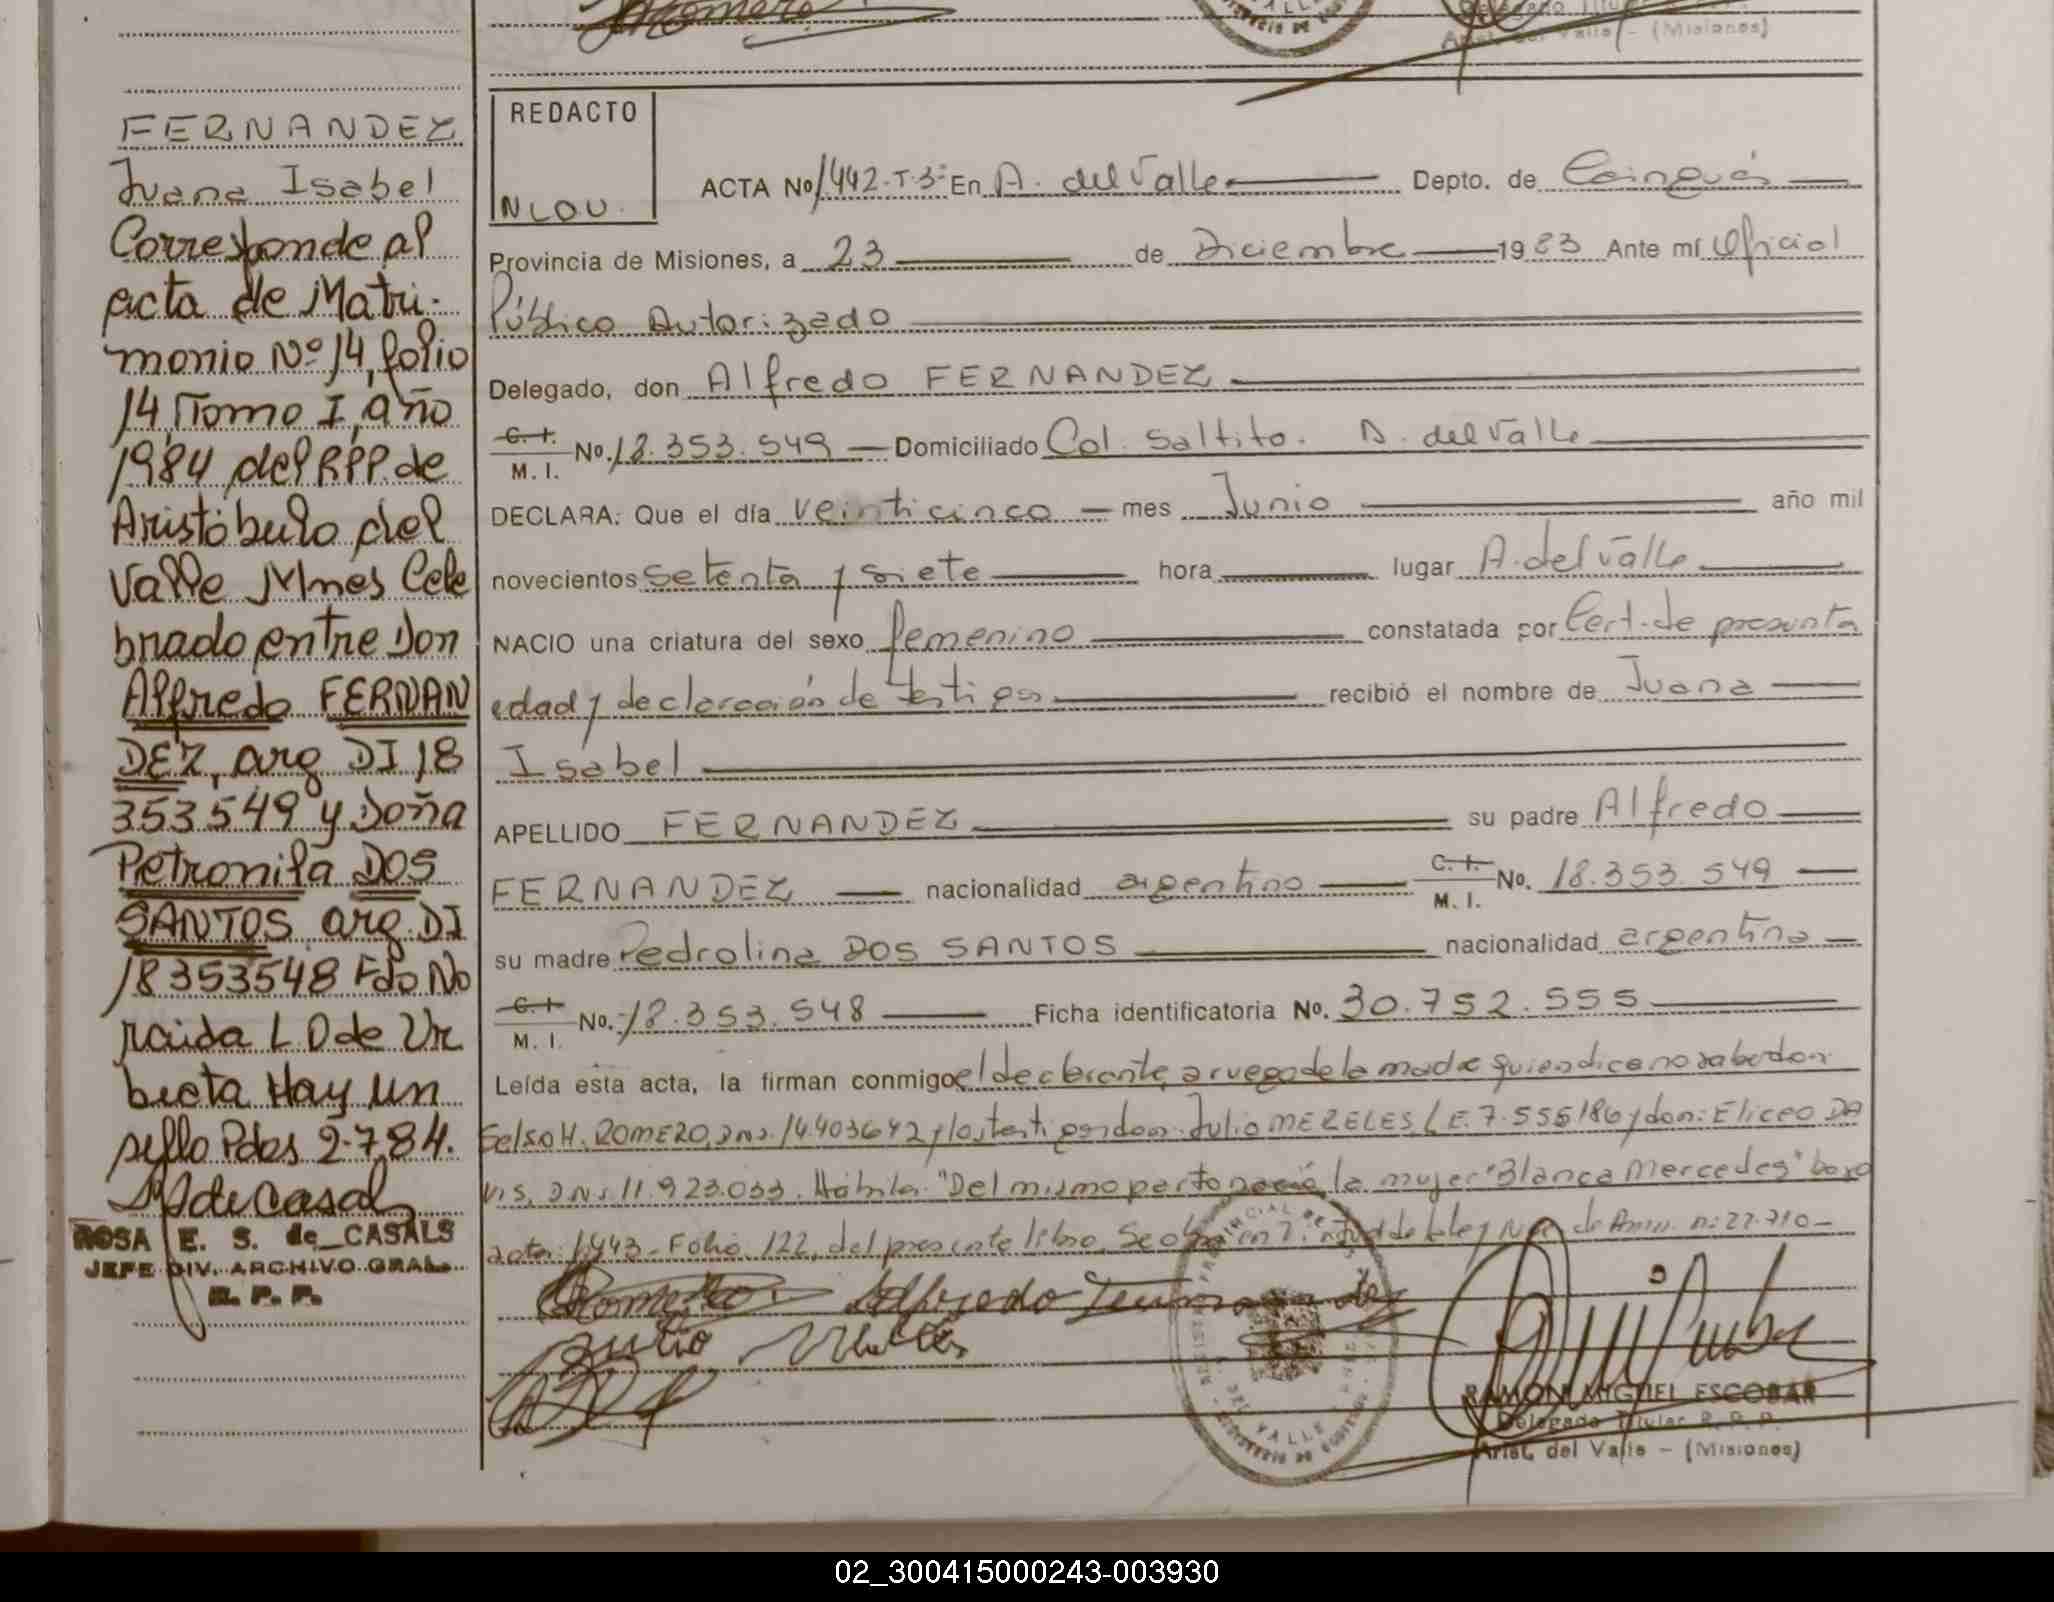 Delegado Titular R. P. P.
Arist. del Valle - (Misiones)
FERNANDEZ
Juana Isabel
Corresponde al
acta de Matri-
monio Nº 14, folio
14, Tomo I, año
1984 del RPP. de
Aristóbulo del
Valle Mnes Cele
brado entre Don
Alfredo FERNAN
DEZ, arg DI 18
353549 y Doña
Petronila DOS
SANTOS. arg. DI
18353548 Fdo No
raida L D de Ur
bieta Hay un
sello Pdas 2-7-84.
ROSA E. S. de CASALS
JEFE DIV. ARCHIVO GRAL.
R. P. P.
REDACTO
NLOU.
ACTA No 1442-T-3º En A. del Valle Depto. de Cainguás
Provincia de Misiones, a 23 de Diciembre 1983 Ante mí Oficial
Público Autorizado
Delegado, don Alfredo FERNANDEZ
C. I. M. I. No. 18.353.549 Domiciliado Col. Saltito. A. del Valle
DECLARA: Que el día veinticinco mes Junio año mil
novecientos setenta y siete hora lugar A. del Valle
NACIO una criatura del sexo femenino constatada por Cert. de presunta
edad y declaración de testigos recibió el nombre de Juana
Isabel
APELLIDO FERNANDEZ su padre Alfredo
FERNANDEZ nacionalidad argentino C. I. M. I. No. 18.353.549
su madre Pedrolina DOS SANTOS nacionalidad argentina
C. I. M. I. No. 18.353.548 Ficha identificatoria No. 30.752.555
Leída esta acta, la firman conmigo el declarante, a ruego de la madre quien dice no saber don
Selso H. ROMERO, DNI. 14.403642 y los testigos don: Julio MERELES, L.E. 7.555186 y don: Eliceo DA
VIS, DNI. 11.923.033. Hábiles. "Del mismo parto nació la mujer "Blanca Mercedes" bajo
acta: 1443 - Folio 122, del presente libro. Se de Ley de 22.710-
Alfredo Fernandez
Julio
RAMON MIGUEL ESCOBAR
Delegado Titular R. P. P.
Arist. del Valle - (Misiones)
02_300415000243-003930